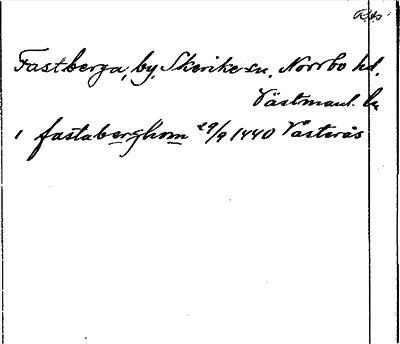 Fastberga, by, Skerike sn. Norrbo hd.
Västmanl. ln
1 fastaberghom 29/9 1440 Västerås